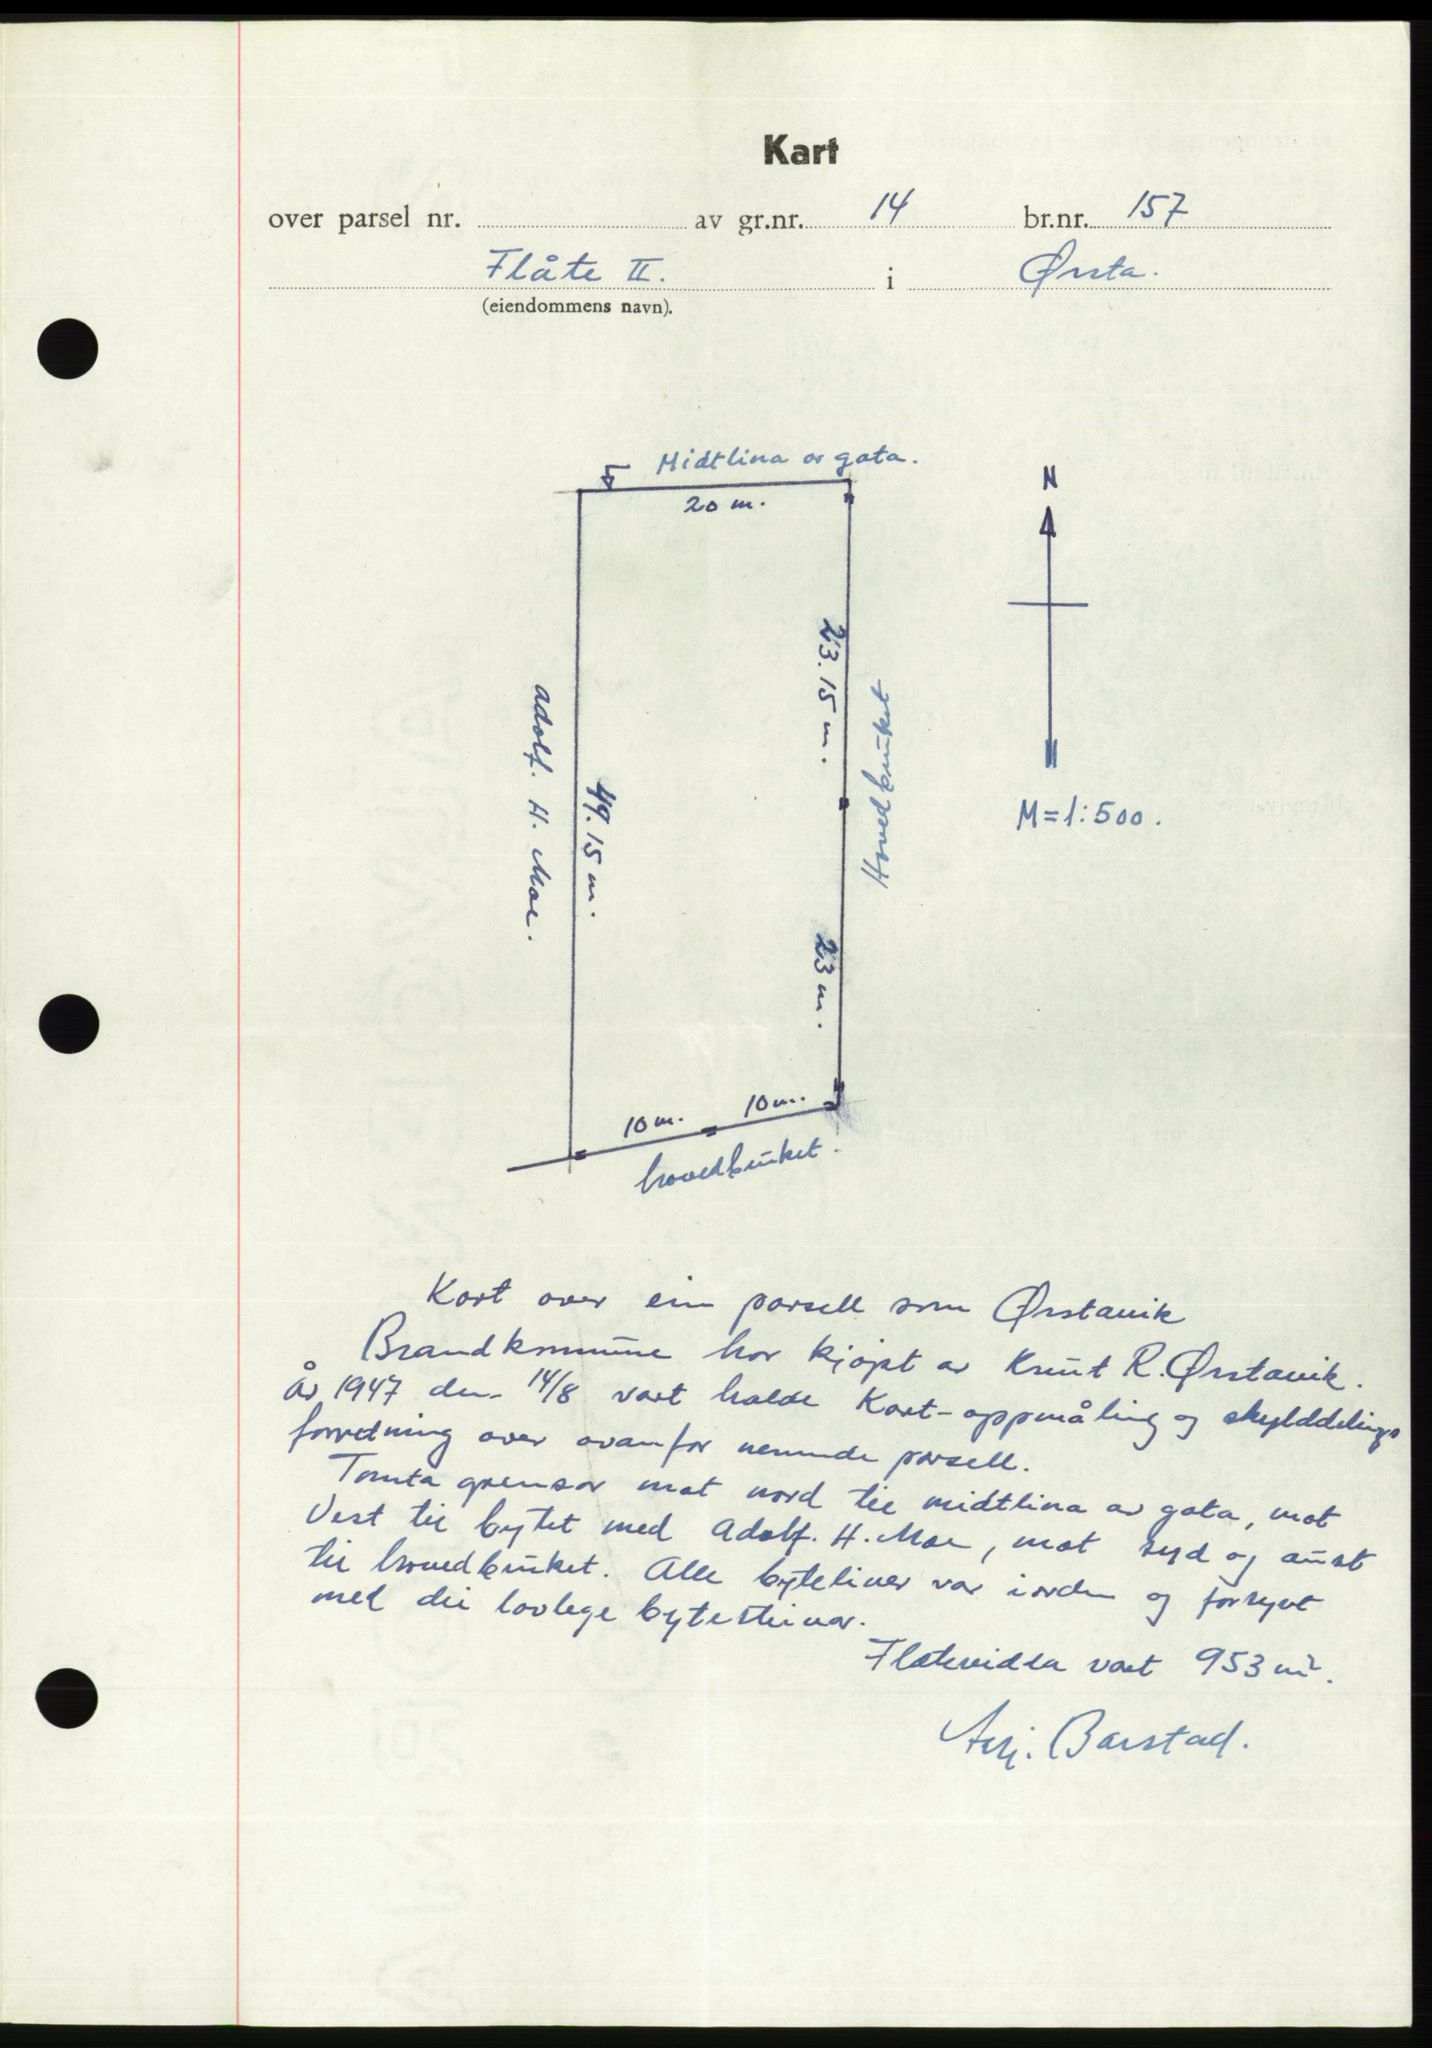 Kart
over parsel nr. av gr.nr. 14 br.nr. 157
Flåte II. i Ørsta.
(eiendommens navn).
Midtlina av gata.
20 m.
N
23.15 m.
Hovedbruket
Adolf. H. Moe.
49.15 m.
M=1:500.
23 m.
10 m. 10 m.
hovedbruket.
Kart over ein parsell som Ørstavik
Brandkommune har kjøpt av Knut R. Ørstavik.
År 1947 den 14/8 vart halde Kart-oppmåling og skylddelings
forretning over ovanfor nemnde parsell.
Tomta grensar mot nord til midtlina av gata, mot
Vest til bytet med Adolf. H. Moe, mot syd og aust
til hovedbruket. Alle byteliner var i orden og forsynt
med dei lovlege bytesteinar.
Flatevidda vart 953 m².
Barstad.